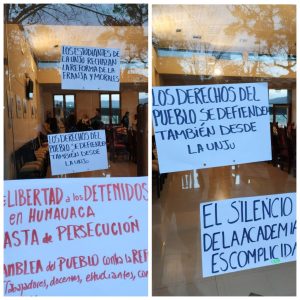 LOS ESTUDIANTES DE
LA UNJU RECHAZAN
LA REFORMA DE LA
FRANJA Y MORALES
LOS DERECHOS DEL
PUEBLO SE DEFIENDEN
TAMBIÉN DESDE
LA UNJU
LIBERTAD a los DETENIDOS
en HUMAUACA
BASTA de PERSECUCIÓN
AMBLEA del PUEBLO contra la REF
Trabajadores, docentes, estudiantes, con
LOS DERECHOS DEL
PUEBLO SE DEFIENDEN
TAMBIÉN DESDE
LA UNJU
EL SILENCIO
DE LA ACADEMIA
ES COMPLICIDA